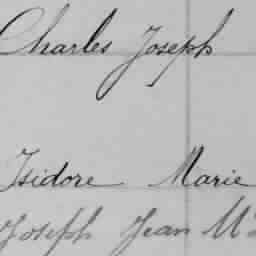 Charles Joseph
Isidore Marie
Joseph Jean M